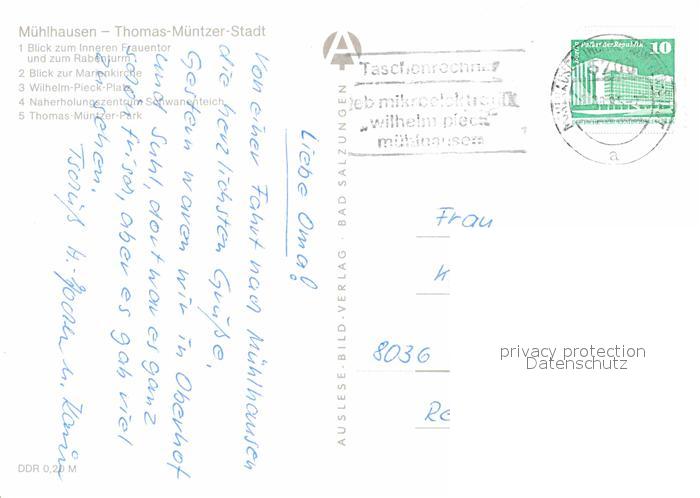 Mühlhausen – Thomas-Müntzer-Stadt
1 Blick zum Inneren Frauentor
und zum Rabenturm
2 Blick zur Marienkirche
3 Wilhelm-Pieck-Platz
4 Naherholungszentrum Schwanenteich
5 Thomas-Müntzer-Park
Liebe Oma!
Von einer Fahrt nach Mühlhausen
die herzlichsten Grüße.
Gestern waren wir in Oberhof
und Suhl, dort war es ganz
schön frisch, aber es gab viel
zu sehen.
Tschüß H.-Jochen u. Karin
DDR 0,20 M
AUSLESE-BILD-VERLAG · BAD SALZUNGEN
A
Taschenrechner
veb mikroelektronik
„wilhelm pieck"
mühlhausen
Palast der Republik
10
a
Frau
K
8036
privacy protection
Datenschutz